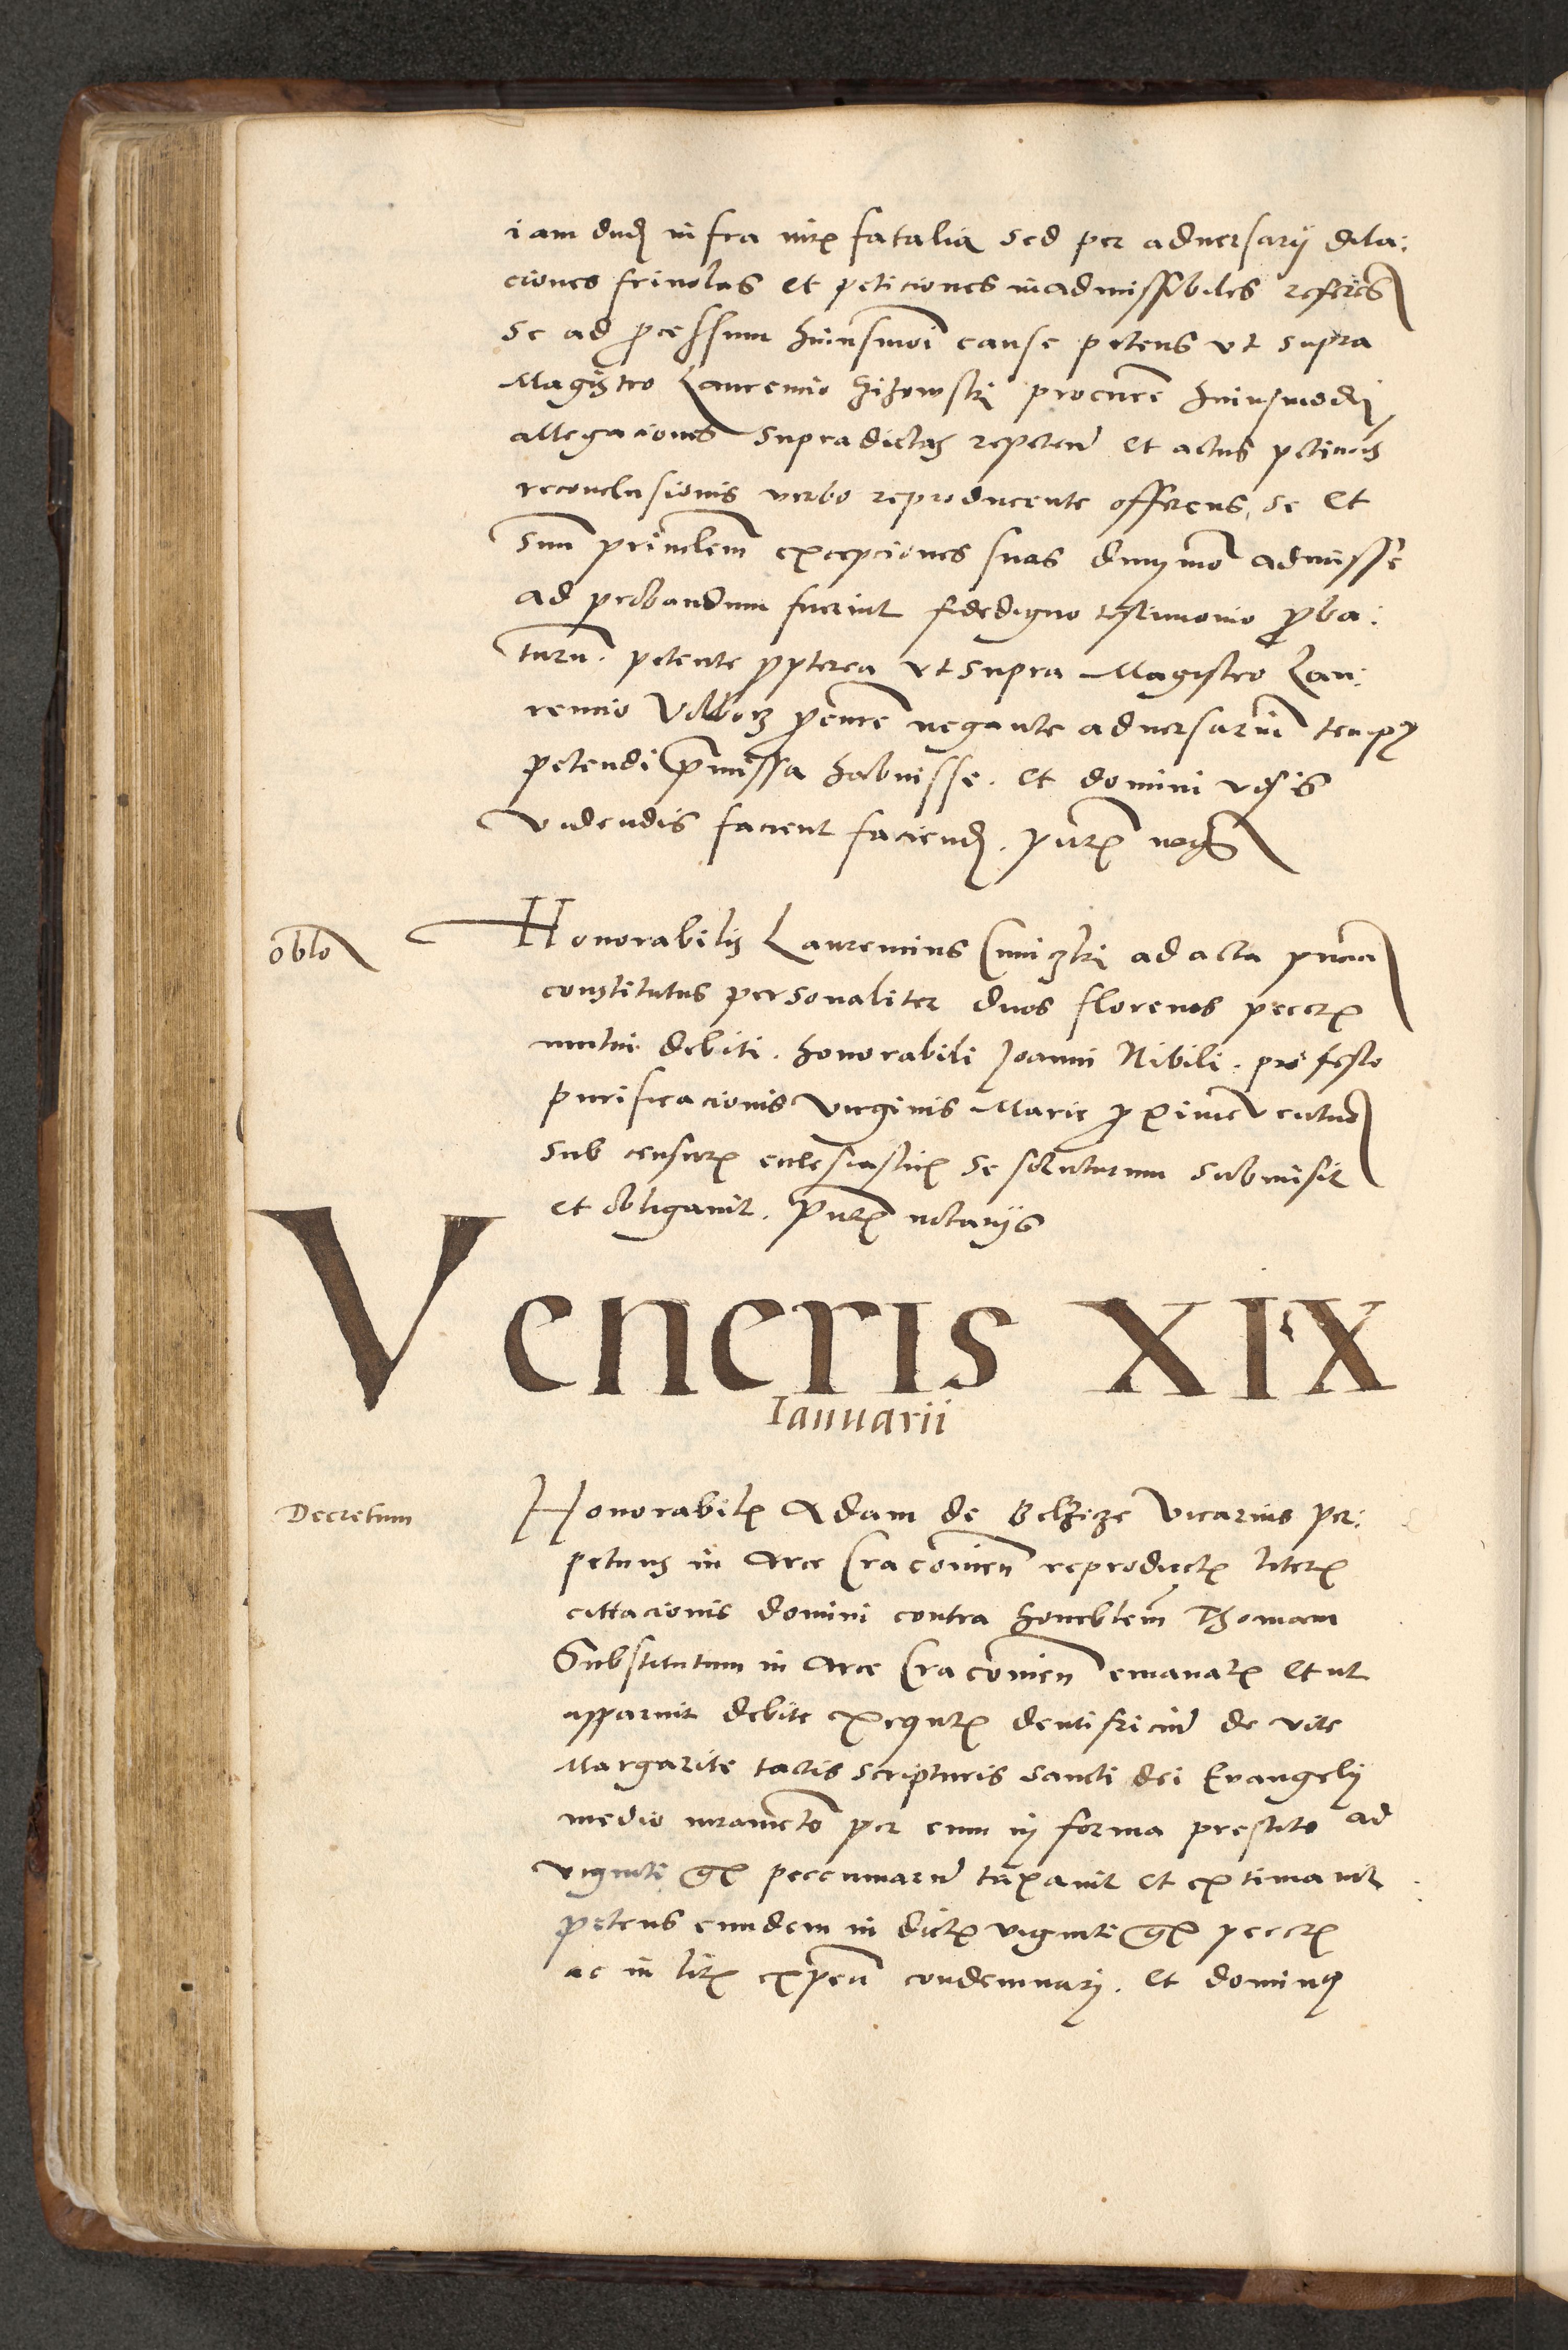 iam dud infra iure fatalia sed per adversarij dila:
ciones frivolas et peticiones inadmissibiles referens
se ad processum huiusmoi cause petens vt supra
Magistro Laurencio procure huiusmodi
allegaciones supradictas repeten et actus
reconclusionis verbo reproducente offerens, se et
suu principalem excepciones suas dummo admisse
ad probandum fuerint fidedigno testimonio proba:
turu. petente propterea vt supra Magistro Lau:
rencio procure negante adversariu tempus
petendi premissa habuisse. et domini visis
videndis facient faciend.
oblo
Honorabilis Laurencius ad acta
constitutus personaliter duos florenos peccun
mutui debiti. honorabili Joanni Nibili. pro festo
purificacionis virginis Marie proxime ventur
sub censuris ecclesiasticis se soluturum submisit
et obligavit. pntibus notarijs
Veneris XIX
Ianuarii
Decretum
Honorabilis Adam de Belzicze vicarius per:
petuus in arce Cracovien reproductis literis
cittacionis domini contra honorabilem Thomam
Substitutum in arce Cracovien emanatis et ut
apparuit debite exequtis de vite
Margarite tactis scripturis sancti dei Evangelij
medio iuramento per eum in forma prestito ad
viginti peccuniarum taxavit et extimavit
petens eundem in dictis viginti
ac in litis expen condemnari. et dominus